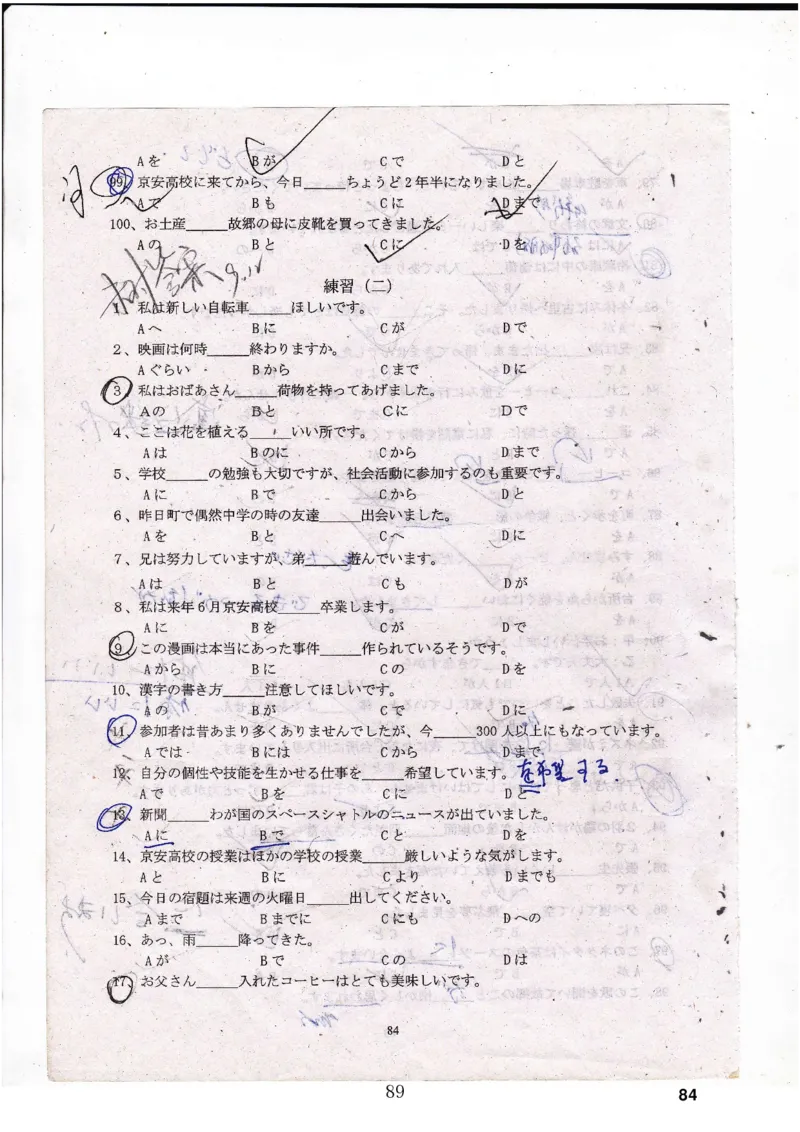 Aを Bが Cで Dと
99、京安高校に来てから、今日_____ちょうど2年半になりました。
Aで Bも Cに Dまで
100、お土産_____故郷の母に皮靴を買ってきました。
Aの Bと Cに Dを
9.12
練習（二）
1、私は新しい自転車_____ほしいです。
Aへ Bに Cが Dで
2、映画は何時_____終わりますか。
Aぐらい Bから Cまで Dに
3、私はおばあさん_____荷物を持ってあげました。
Aの Bと Cに Dで
4、ここは花を植える_____いい所です。
Aは Bのに Cから Dまで
5、学校_____の勉強も大切ですが、社会活動に参加するのも重要です。
Aに Bで Cから Dと
6、昨日町で偶然中学の時の友達_____出会いました。
Aを Bと Cへ Dに
7、兄は努力していますが、弟_____遊んでいます。
Aは Bと Cも Dが
8、私は来年6月京安高校_____卒業します。
Aに Bを Cが Dで
9、この漫画は本当にあった事件_____作られているそうです。
Aから Bに Cの Dを
10、漢字の書き方_____注意してほしいです。
Aの Bが Cで Dに
11、参加者は昔あまり多くありませんでしたが、今_____300人以上にもなっています。
Aでは Bには Cから Dまで
12、自分の個性や技能を生かせる仕事を_____希望しています。を希望する
Aで Bを Cに Dと
13、新聞_____わが国のスペースシャトルのニュースが出ていました。
Aに Bで Cと Dを
14、京安高校の授業はほかの学校の授業_____厳しいような気がします。
Aと Bに Cより Dまでも
15、今日の宿題は来週の火曜日_____出してください。
Aまで Bまでに Cにも Dへの
16、あっ、雨_____降ってきた。
Aが Bで Cの Dは
17、お父さん_____入れたコーヒーはとても美味しいです。
84
89
84